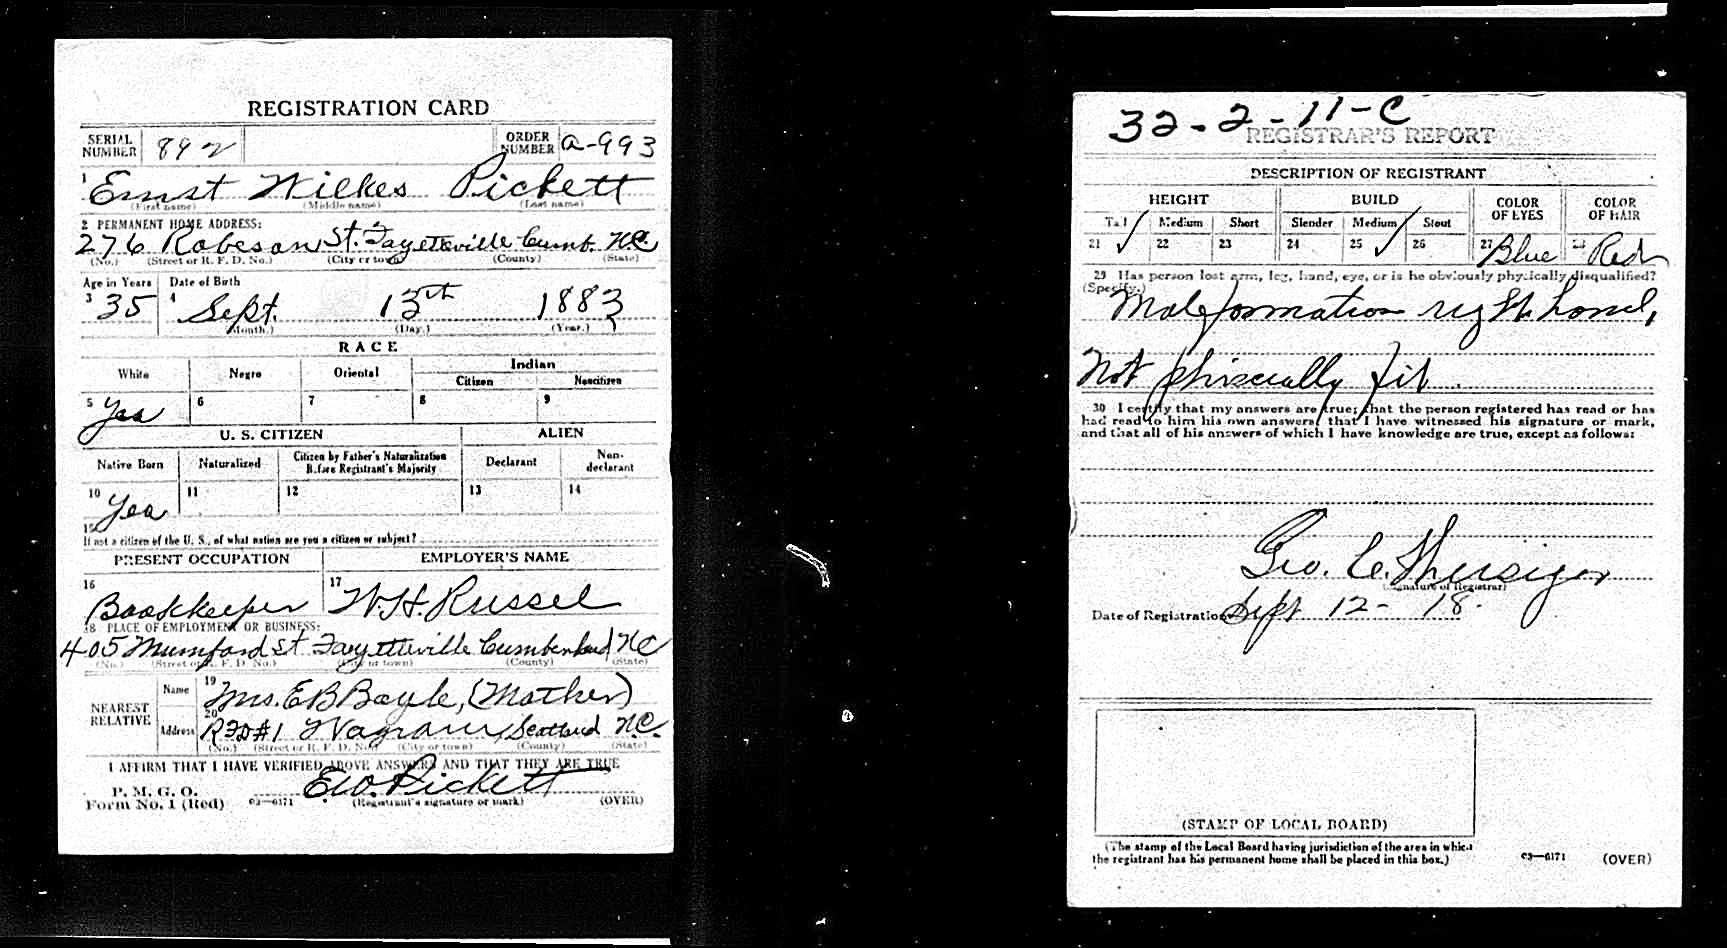 REGISTRATION CARD
SERIAL NUMBER 892 ORDER NUMBER a-993
1 Ernst Wilkes Pickett
(First name) (Middle name) (Last name)
2 PERMANENT HOME ADDRESS:
276 Robeson St. Fayetteville Cumb. N.C.
(No.) (Street or R. F. D. No.) (City or town) (County) (State)
Age in Years Date of Birth
3 35 4 Sept. 13th 1883
(Month.) (Day.) (Year.)
RACE
White Negro Oriental Indian
Citizen Noncitizen
5 Yes 6 7 8 9
U. S. CITIZEN ALIEN
Native Born Naturalized Citizen by Father's Naturalization Before Registrant's Majority Declarant Non-declarant
10 Yea 11 12 13 14
15 If not a citizen of the U. S., of what nation are you a citizen or subject?
PRESENT OCCUPATION EMPLOYER'S NAME
16 Bookkeeper 17 W. H. Russel
18 PLACE OF EMPLOYMENT OR BUSINESS:
405 Mumford St Fayetteville Cumberland NC
(No.) (Street or R. F. D. No.) (City or town) (County) (State)
NEAREST RELATIVE
Name 19 Mrs. E B Bayle, (Mother)
Address 20 RFD#1 Wagram, Scotland N.C.
(No.) (Street or R. F. D. No.) (City or town) (County) (State)
I AFFIRM THAT I HAVE VERIFIED ABOVE ANSWERS AND THAT THEY ARE TRUE
P. M. G. O.
Form No. 1 (Red) 03—6171 E. W. Pickett
(Registrant's signature or mark) (OVER)
32-2-11-C
REGISTRAR'S REPORT
DESCRIPTION OF REGISTRANT
HEIGHT BUILD COLOR OF EYES COLOR OF HAIR
Tall Medium Short Slender Medium Stout
21 ✓ 22 23 24 25 ✓ 26 27 Blue 28 Red
29 Has person lost arm, leg, hand, eye, or is he obviously physically disqualified?
(Specify.)
Maleformation right hand,
Not phiscually fit.
30 I certify that my answers are true; that the person registered has read or has
had read to him his own answers; that I have witnessed his signature or mark,
and that all of his answers of which I have knowledge are true, except as follows:
Geo. C.
(Signature of Registrar)
Date of Registration Sept 12- 18.
(STAMP OF LOCAL BOARD)
(The stamp of the Local Board having jurisdiction of the area in which
the registrant has his permanent home shall be placed in this box.)
03—6171 (OVER)